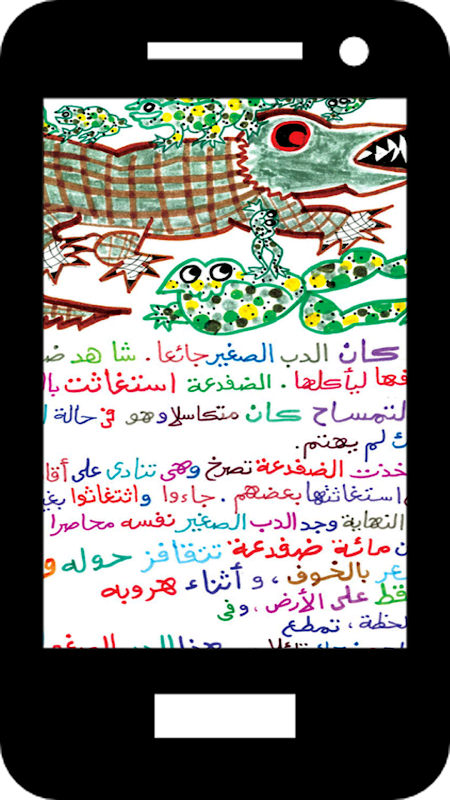 كان الدب الصغير جائعا. شاهد
ليأكلها. الضفدعة استغاثت
لتمساح كان متكاسلا وهو في حالة
لم يهتم.
خذت الضفدعة تصرخ وهي تنادي على
استغاثتها بعضهم. جاءوا واثتغاثوا
النهاية وجد الدب الصغير نفسه محاصرا
مائة ضفدعة تتقافز حوله و
بالخوف، و أثناء هروبه
على الأرض، وفي
لحظة، تمطع